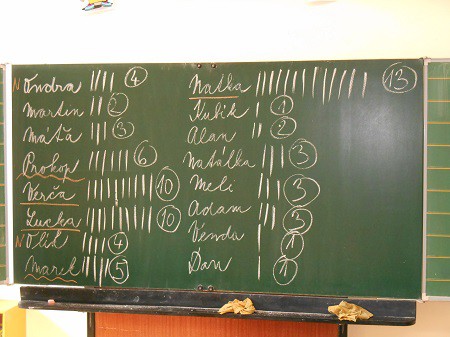 N Ondra |||| 4
Martin || 2
Máťa ||| 3
Prokop |||||| 6
Verča |||||||||| 10
Lucka |||||||||| 10
N Olík |||| 4
Marek ||||| 5
Natka ||||||||||||| 13
Kubík | 1
Alan || 2
Natálka ||| 3
Meli ||| 3
Adam ||| 3
Venda | 1
Dan | 1